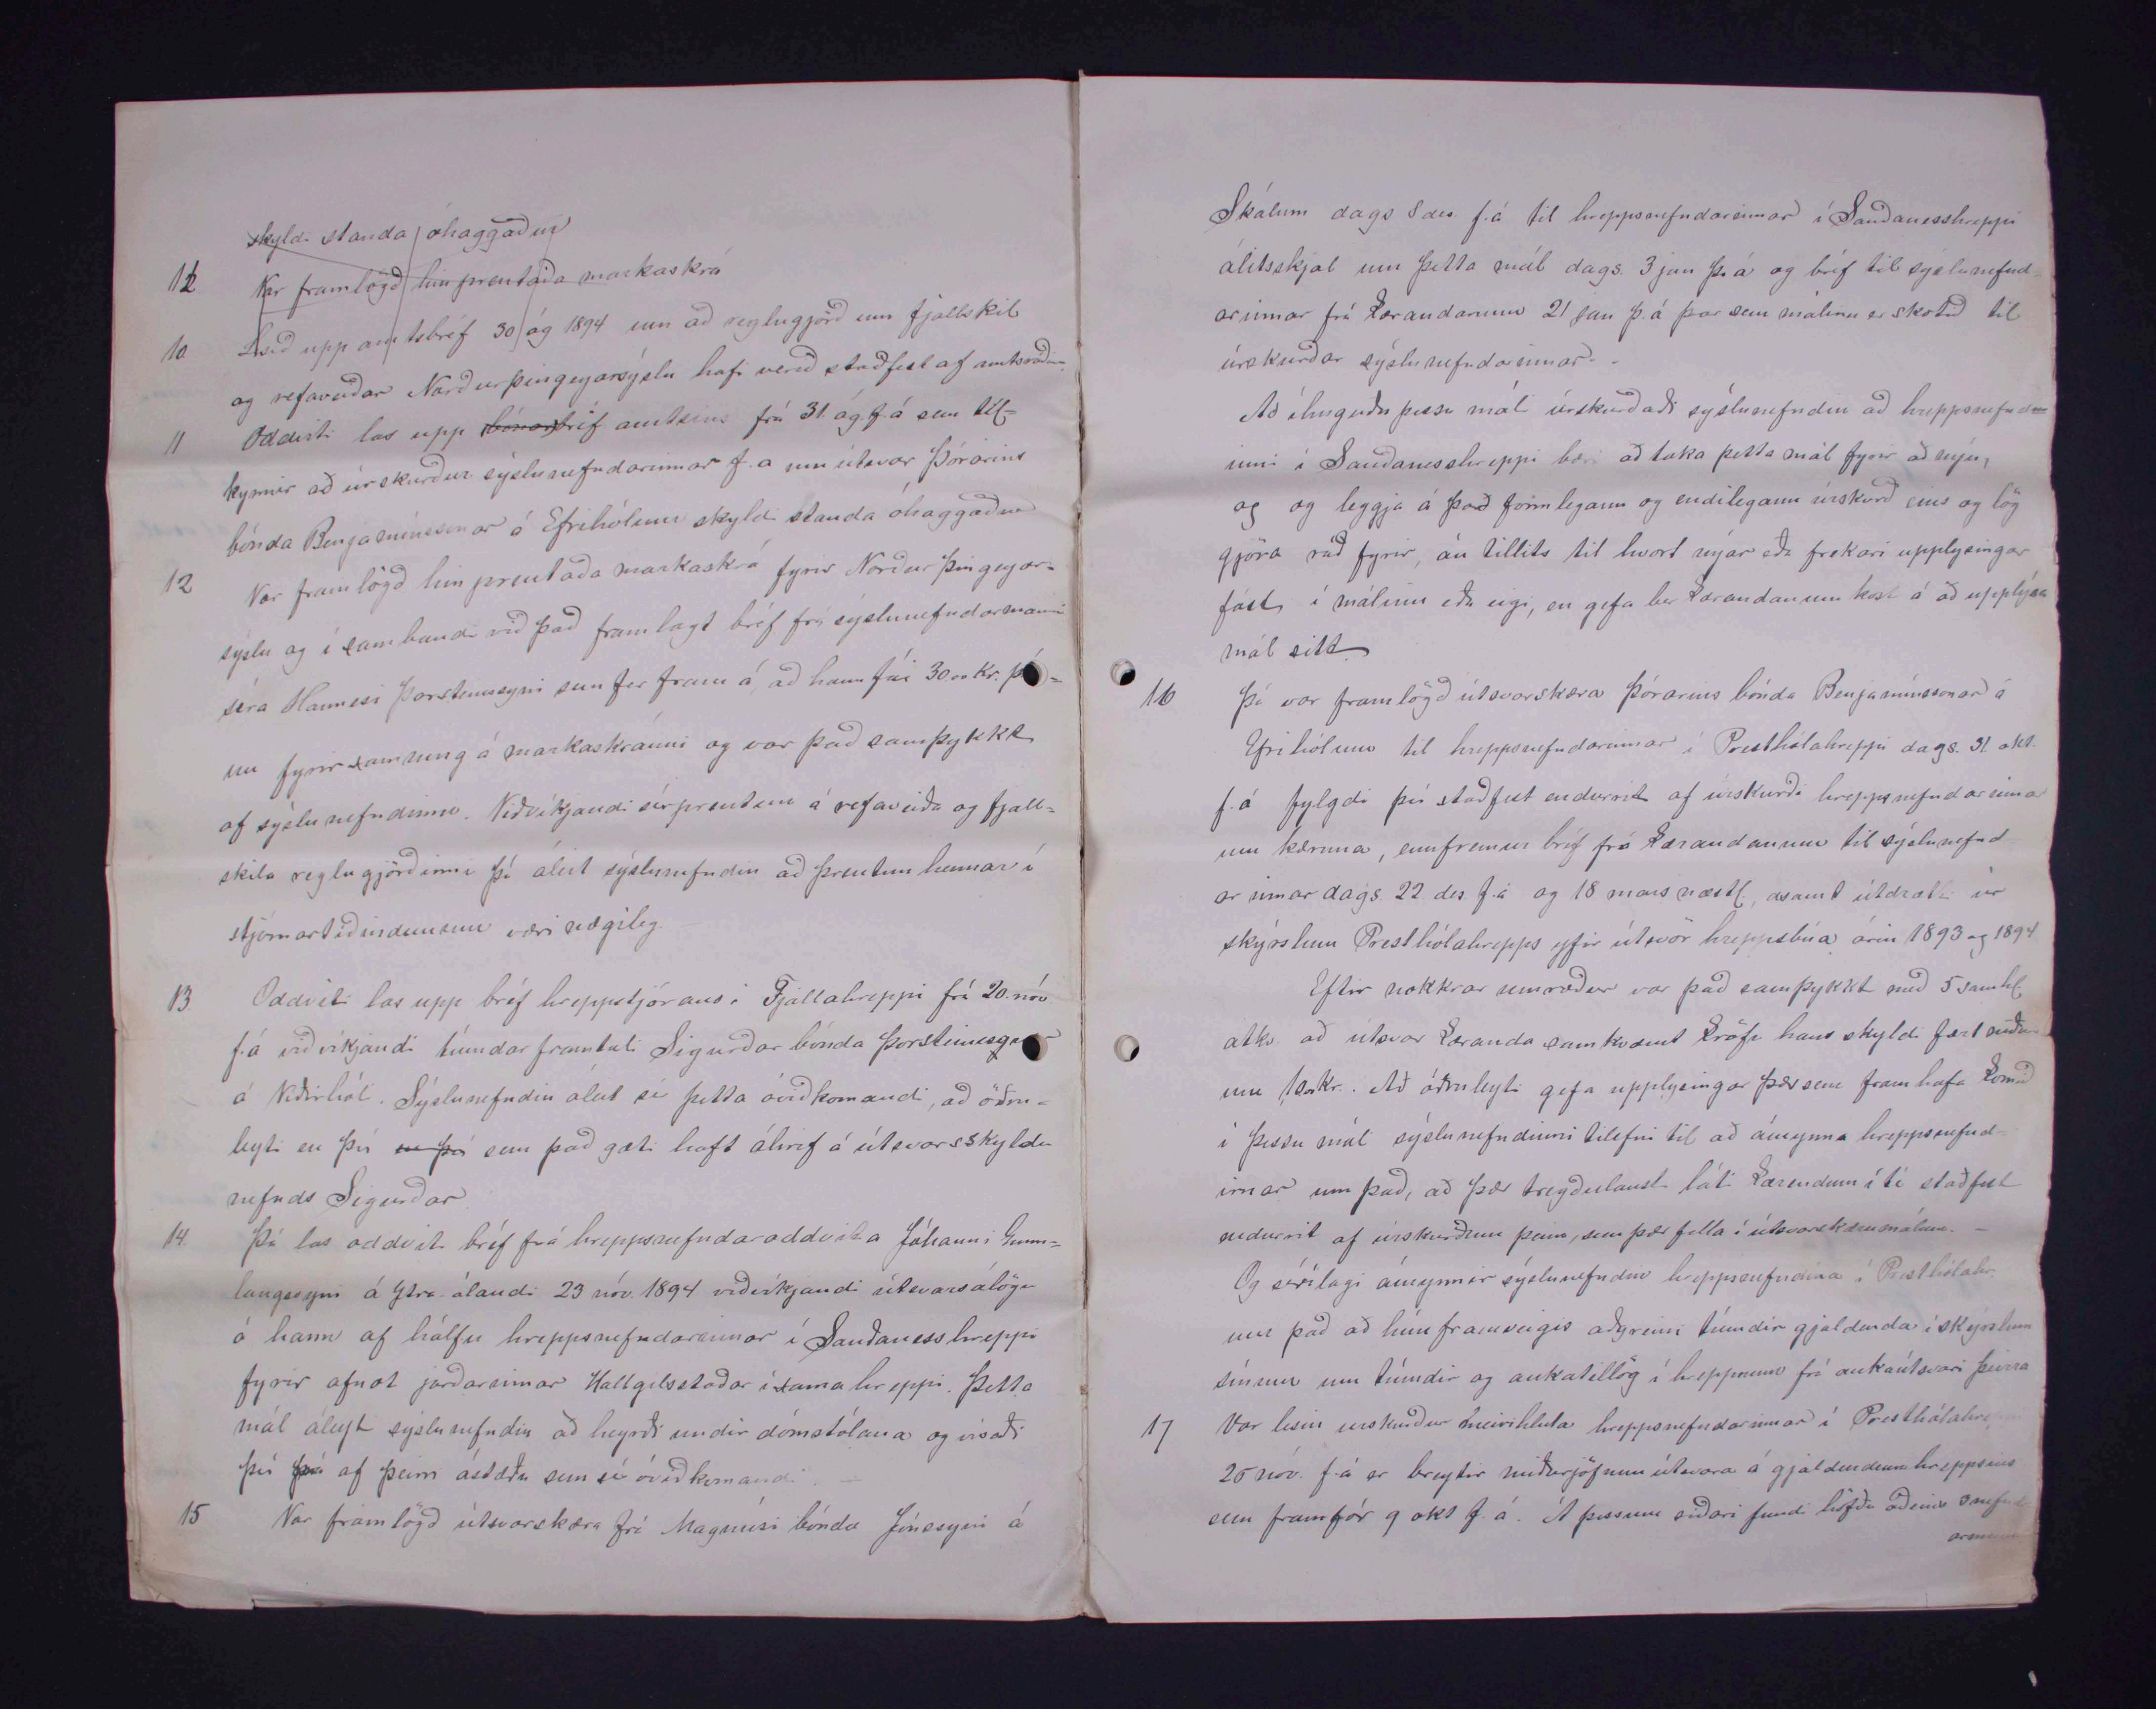 skyldi standa óhaggaður
12 Var framlögð hin prentaða markaskrá
10 Lesið upp amtsbréf 30 ág 1894 um að reglugjörð um fjallskil
og refaveiðar Norðurþingeyarsýslu hafi verið staðfest af amtsráðin-
11 Oddviti las upp bréf amtsins frá 31. ág. f. á sem til-
kynnir að úrskurður sýslunefndarinnar f. a um útsvar Þórarins
bónda Benjamínssonar á Efrihólum skyldi standa óhaggaður
12 Var framlögð hin prentaða markaskrá fyrir Norður þingeyar-
sýslu og í sambandi við það framlagt bréf frá sýslunefndarmanni
séra Hannesi Þorsteinssyni sem fer fram á, að hann fái 30.00 Kr. þó-
un fyrir samning á markaskránni og var það samþykkt
af sýslunefndinni. Viðvíkjandi sérprentun á refaveiða og fjall-
skila reglugjörðinni þá áleit sýslunefndin að prentun hennar í
stjórnartíðindunum væri nægileg.
13 Oddviti las upp bréf hreppstjórans í Fjallahreppi frá 20. nóv.
f. á viðvíkjandi tíundarframtali Sigurðar bónda Þorsteinssonar
á Víðirhól. Sýslunefndin áleit sé þetta óviðkomandi, að öðru-
leyti en því en því sem það gæti haft áhrif á útsvarsskyldu
nefnds Sigurðar.
14. Þá las oddviti bréf frá hreppsnefndaroddvita Jóhanni Gunn-
laugssyni á Ytra-álandi 23 nóv. 1894 viðvíkjandi útsvarsálögu
á hann af hálfu hreppsnefndarinnar í Sauðanesshreppi
fyrir afnot jarðarinnar Hallgilsstaðar í sama hreppi. Þetta
mál áleyt sýslunefndin að heyrði undir dómstólana og vísaði
því frá af þeirri ástæðu sem sé óviðkomandi. —
15 Var framlögð útsvarskæra frá Magnúsi bónda Jónssyni á
Skálum dags 8 des. f. á til hreppsnefndarinnar í Sauðanesshreppi
álitsskjal um þetta mál dags. 3 jan þ. á og bréf til sýslunefnd-
arinnar frá kærandanum 21 jan þ. á þar sem málinu er skotið til
úrskurðar sýslunefndarinnar. -
Að íhuguðu þessu máli úrskurðaði sýslunefndin að hreppsnefnd-
inni í Sauðanesshreppi bæri að taka þetta mál fyrir að nýju,
og og leggja á það formlegann og endilegann úrskurð eins og lög
gjöra ráð fyrir, án tillits til hvort nýar eða frekari upplýsingar
fást í málinu eða eigi, en gefa ber kærandanum kost á að upplýsa
mál sitt.
16 Þá var framlögð útsvarskæra Þórarins bónda Benjamínssonar á
Efrihólum til hreppsnefndarinnar í Presthólahreppi dags. 31. okt.
f. á fylgdi því staðfest endurrit af úrskurði hreppsnefndarinnar
um kæruna, ennfremur bréf frá kærandanum til sýslunefnd
arinnar dags. 22. des. f. á og 18 mars næstl., ásamt útdrætti úr
skýrslum Presthólahrepps yfir útsvör hreppsbúa árin 1893 og 1894
Eftir nokkrar umræður var það samþykkt með 5 samhl.
atkv. að útsvar kæranda samkvæmt kröfu hans skyldi fært niður
um 10 kr.. Að öðruleyti gefa upplysingar þær sem fram hafa komið
í þessu máli sýslunefndinni tilefni til að ámynna hreppsnefnd-
irnar um það, að þær tregðulaust láti kærendum í té staðfest
endurrit af úrskurðum þeim, sem þær fella í útsvarskærumálum. -
Og sérílagi ámynnir sýslunefndin hreppsnefndina í Presthólahr.
um það að hún framveigis aðgreini tíundir gjaldenda í skýrslum
sínum um tíundir og aukatillög í hreppnum frá aukaútsvari þeirra
17 Var lesin urskurður meirihluta hreppsnefndarinnar í Presthólahreppi
25 nóv. f. á er breytir niðurjöfnun útsvara á gjaldendum hreppsins
sem framfór 9 okt f. á. Á þessum síðari fundi höfðu aðeins 3 nefnd-